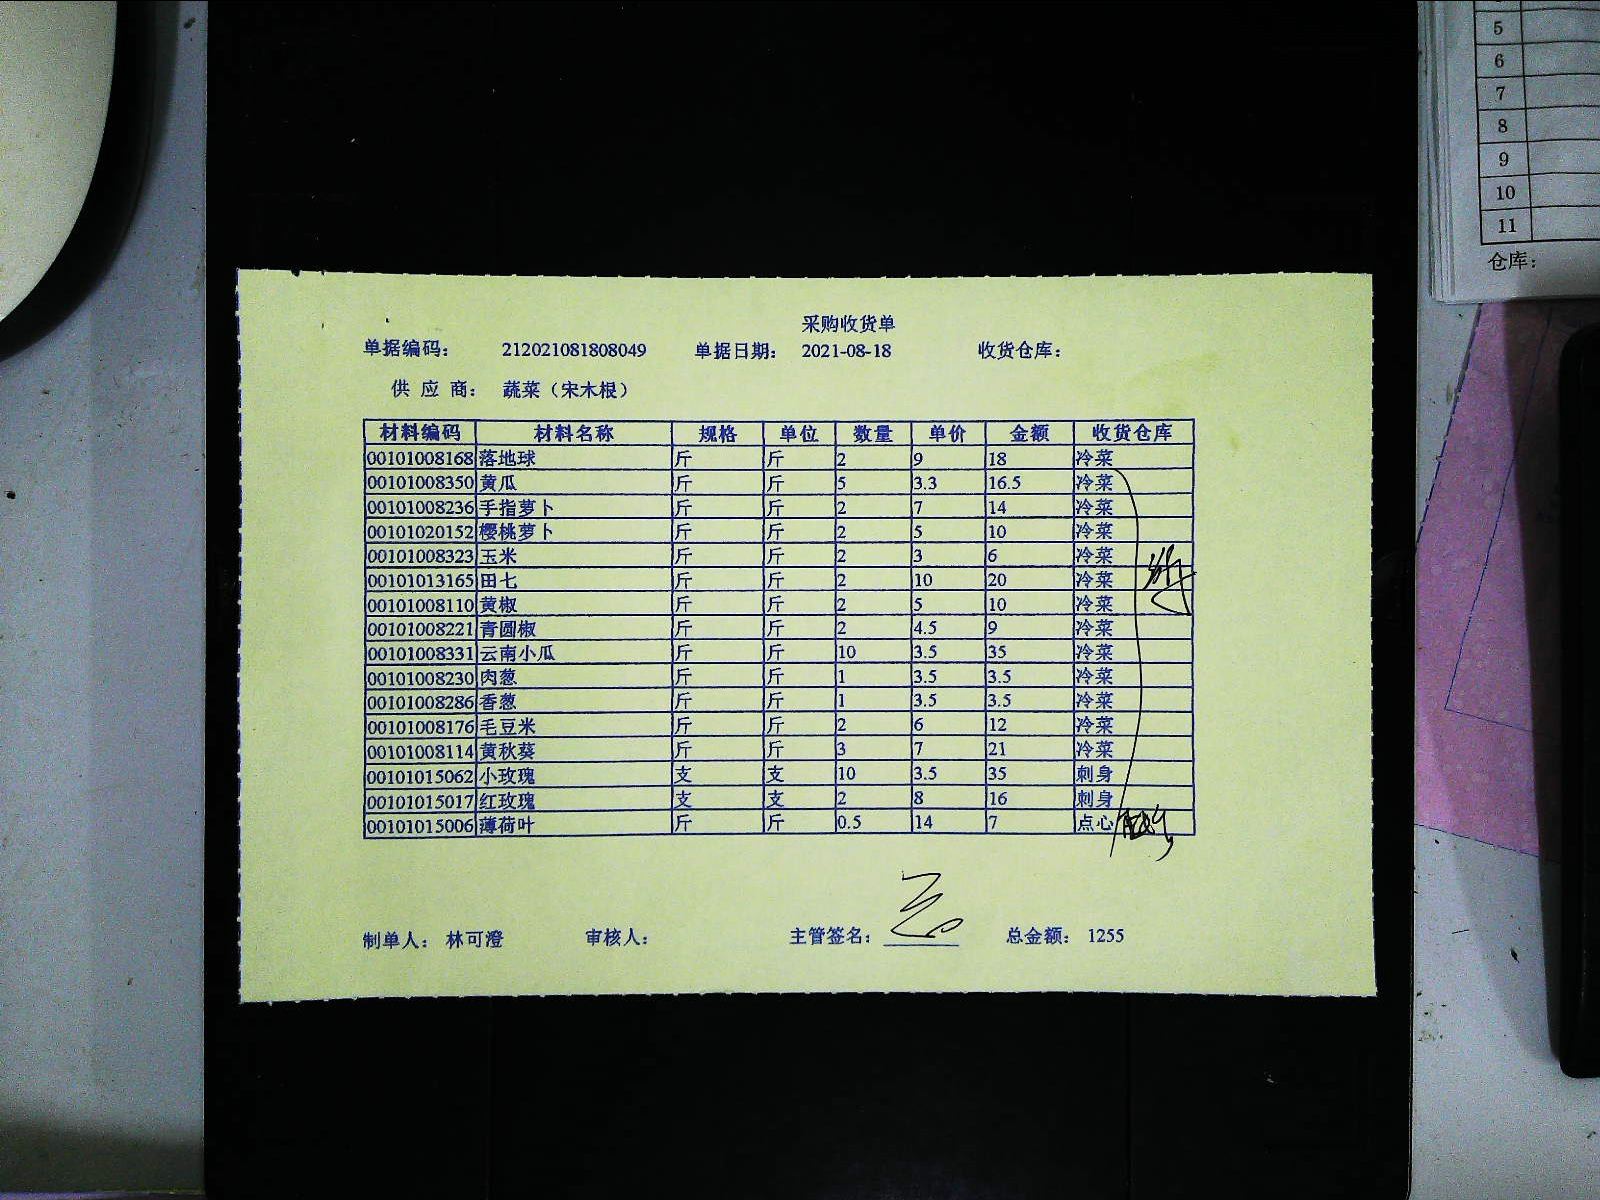 5
6
7
8
9
10
11
仓库：
采购收货单
单据编码： 212021081808049 单据日期： 2021-08-18 收货仓库：
供 应 商： 蔬菜（宋木根）
材料编码 材料名称 规格 单位 数量 单价 金额 收货仓库
00101008168 落地球 斤 斤 2 9 18 冷菜
00101008350 黄瓜 斤 斤 5 3.3 16.5 冷菜
00101008236 手指萝卜 斤 斤 2 7 14 冷菜
00101020152 樱桃萝卜 斤 斤 2 5 10 冷菜
00101008323 玉米 斤 斤 2 3 6 冷菜
00101013165 田七 斤 斤 2 10 20 冷菜
00101008110 黄椒 斤 斤 2 5 10 冷菜
00101008221 青圆椒 斤 斤 2 4.5 9 冷菜
00101008331 云南小瓜 斤 斤 10 3.5 35 冷菜
00101008230 肉葱 斤 斤 1 3.5 3.5 冷菜
00101008286 香葱 斤 斤 1 3.5 3.5 冷菜
00101008176 毛豆米 斤 斤 2 6 12 冷菜
00101008114 黄秋葵 斤 斤 3 7 21 冷菜
00101015062 小玫瑰 支 支 10 3.5 35 刺身
00101015017 红玫瑰 支 支 2 8 16 刺身
00101015006 薄荷叶 斤 斤 0.5 14 7 点心
制单人： 林可澄 审核人： 主管签名： 总金额： 1255